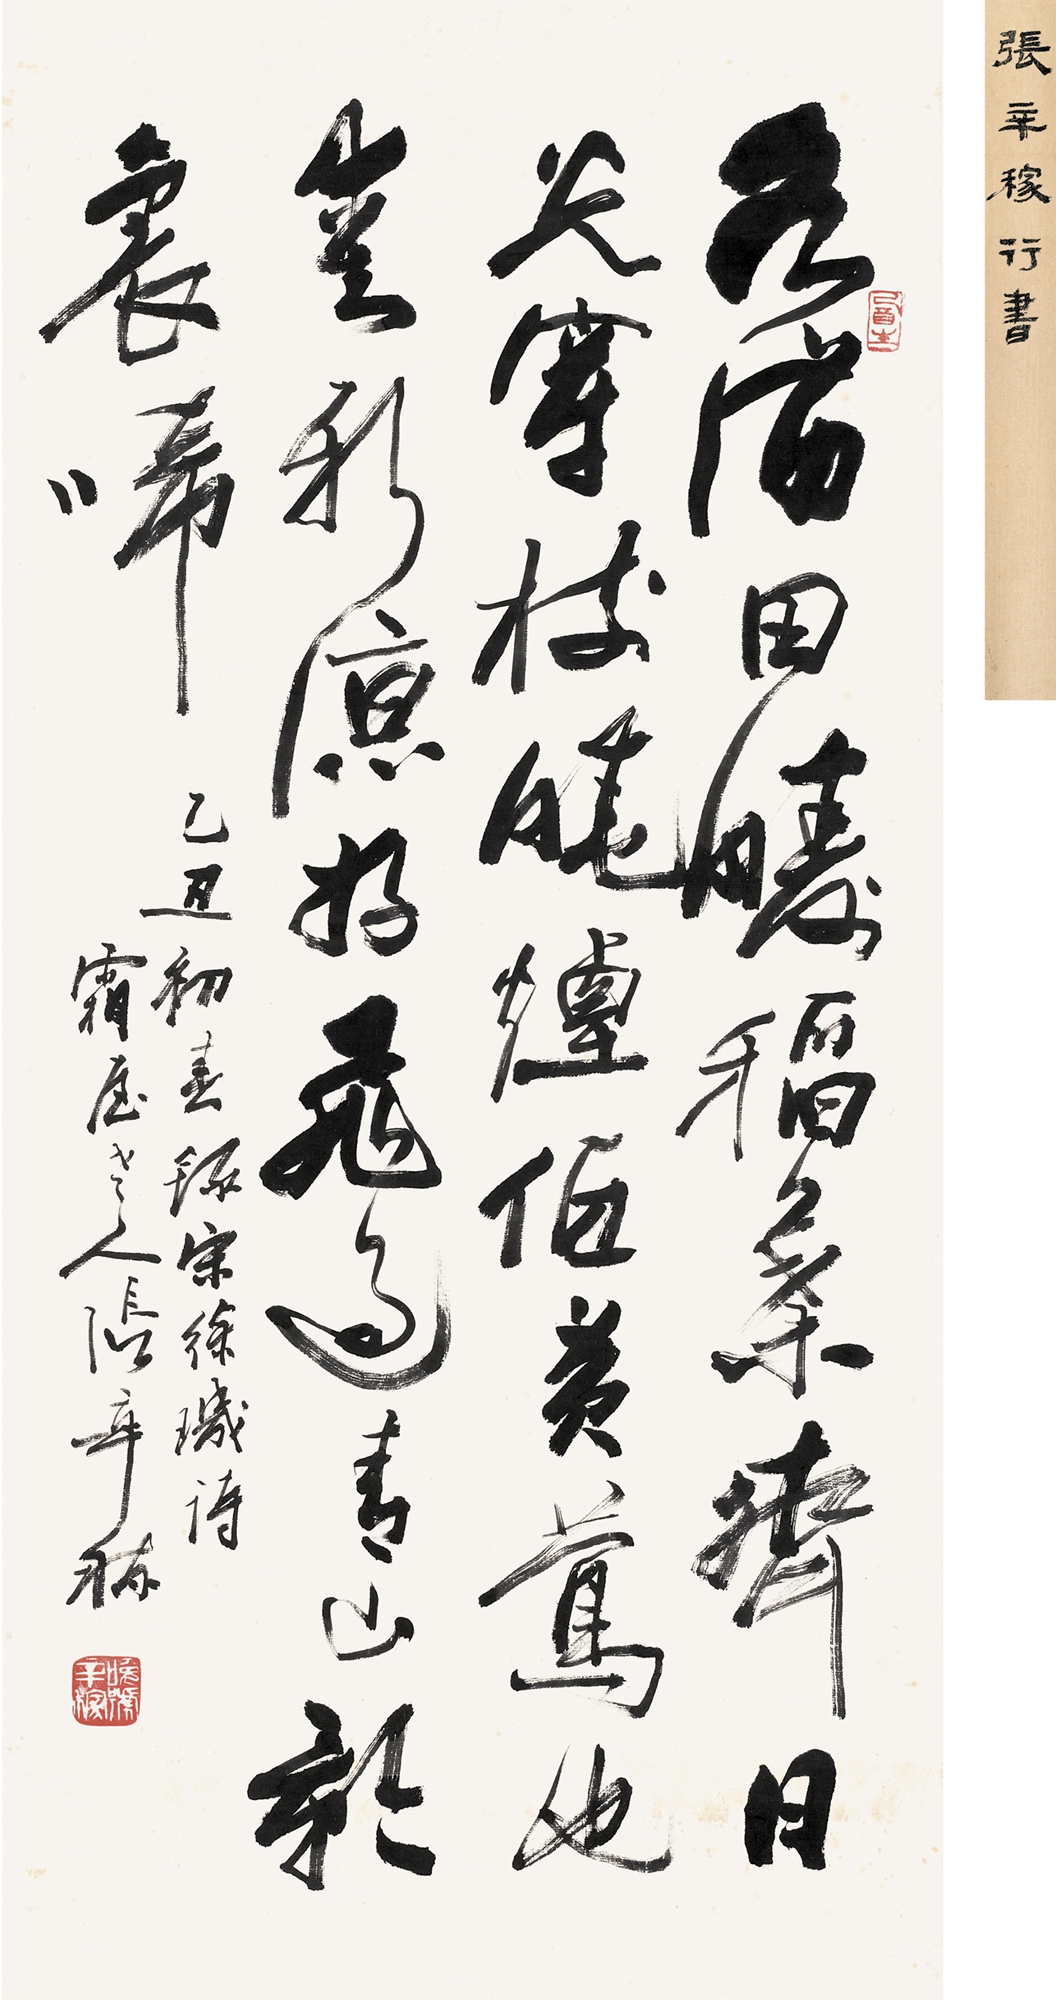 張辛稼行書
水滿田疇稻葉齊日
光穿樹曉煙低黃鶯也
愛新涼好飛過青山影
裏啼
乙丑初春録宋徐璣詩
霜屋老人張辛稼
辛稼